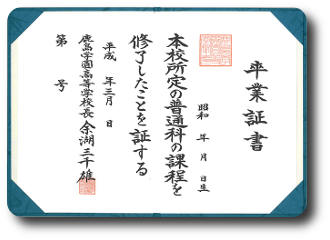 卒業証書
昭和 年 月 日生
本校所定の普通科の課程を
修了したことを証する
平成 年三月 日
鹿島学園高等学校長 余湖三千雄
第 号